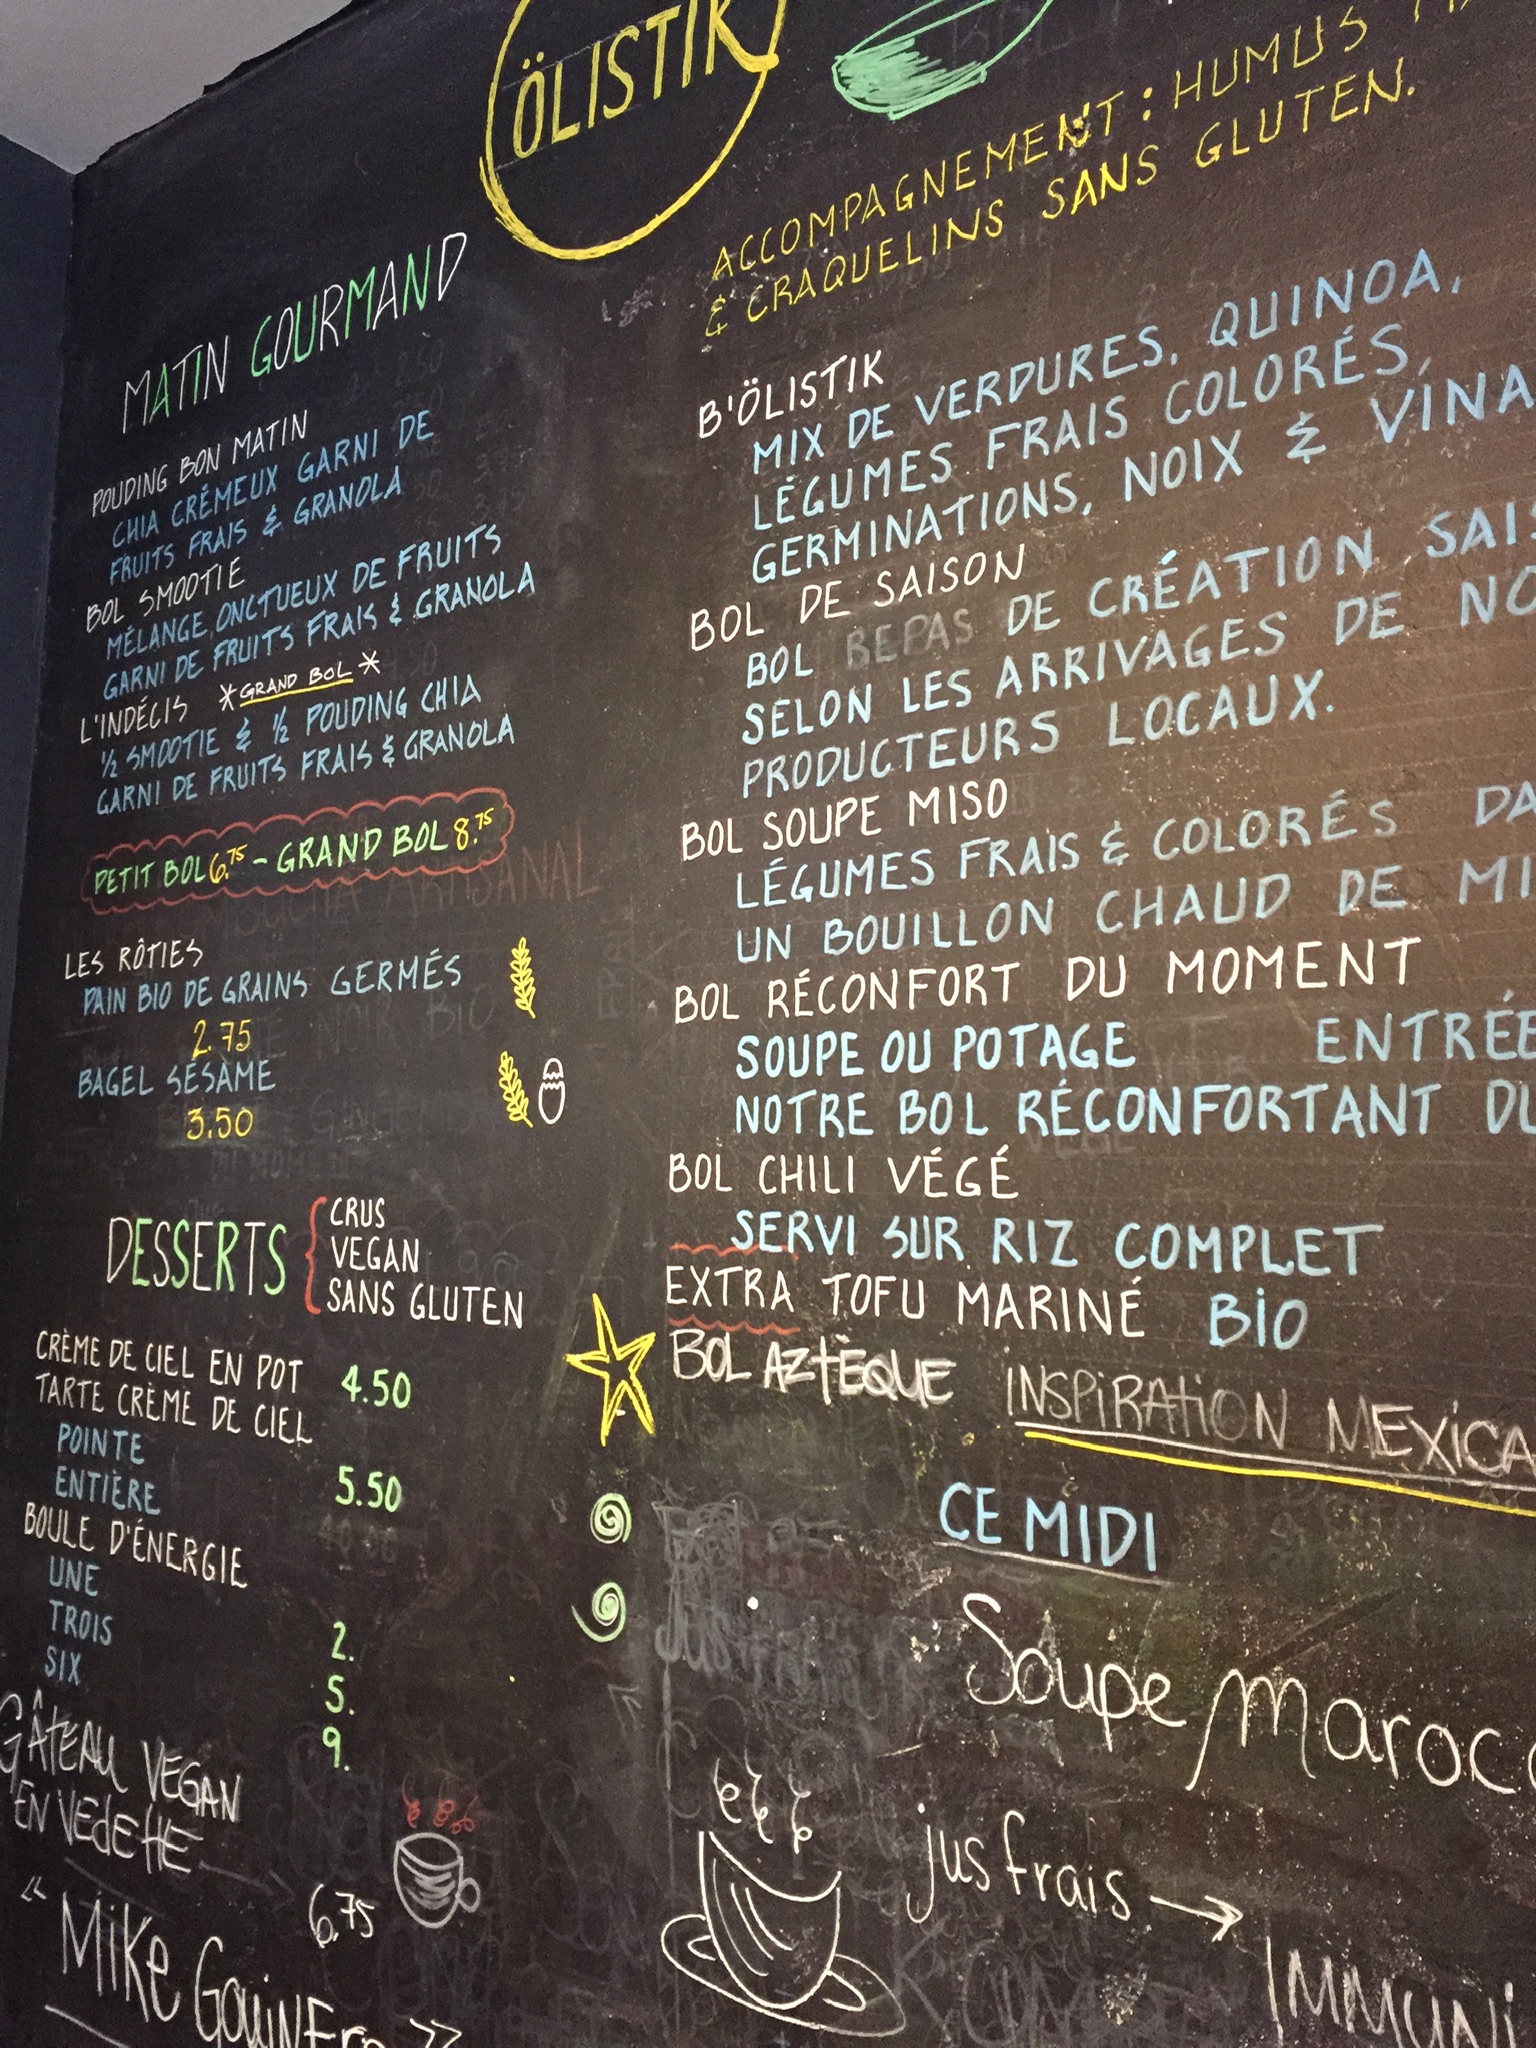 ÖLISTIK
MATIN GOURMAND
POUDING BON MATIN
CHIA CRÉMEUX GARNI DE
FRUITS FRAIS & GRANOLA
BOL SMOOTIE
MÉLANGE ONCTUEUX DE FRUITS
GARNI DE FRUITS FRAIS & GRANOLA
L'INDÉCIS *GRAND BOL*
½ SMOOTIE & ½ POUDING CHIA
GARNI DE FRUITS FRAIS & GRANOLA
PETIT BOL 6.75 - GRAND BOL 8.75
LES RÔTIES
PAIN BIO DE GRAINS GERMÉS
2.75
BAGEL SÉSAME
3.50
DESSERTS
CRUS
VEGAN
SANS GLUTEN
CRÈME DE CIEL EN POT 4.50
TARTE CRÈME DE CIEL
POINTE 5.50
ENTIÈRE
BOULE D'ÉNERGIE
UNE 2.
TROIS 5.
SIX 9.
GÂTEAU VEGAN
EN VEDETTE
6.75
"MIKE
ACCOMPAGNEMENT : HUMUS
& CRAQUELINS SANS GLUTEN.
B'ÖLISTIK
MIX DE VERDURES, QUINOA,
LÉGUMES FRAIS COLORÉS,
GERMINATIONS, NOIX & VINA
BOL DE SAISON
BOL REPAS DE CRÉATION SAIS
SELON LES ARRIVAGES DE NO
PRODUCTEURS LOCAUX.
BOL SOUPE MISO
LÉGUMES FRAIS & COLORÉS DA
UN BOUILLON CHAUD DE MI
BOL RÉCONFORT DU MOMENT
SOUPE OU POTAGE ENTRÉE
NOTRE BOL RÉCONFORTANT DU
BOL CHILI VÉGÉ
SERVI SUR RIZ COMPLET
EXTRA TOFU MARINÉ BIO
BOL AZTÈQUE INSPIRATION MEXICA
CE MIDI
Soupe maroc
jus frais →
IMMUNI